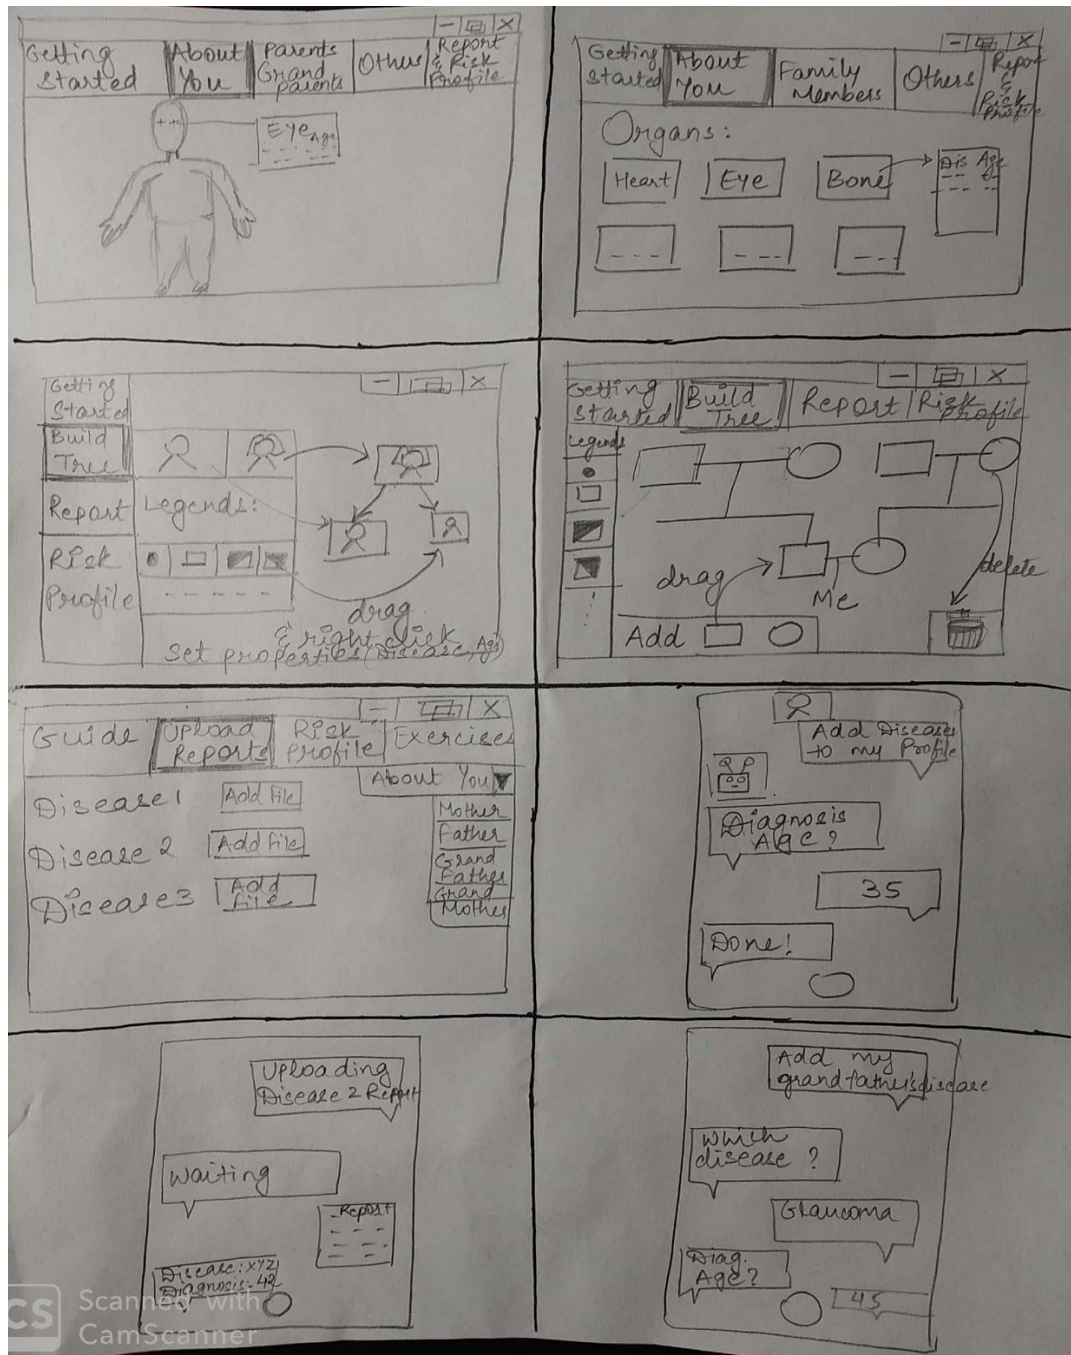 Getting
Started
About
You
Parents
Grand
parents
Others
Report
& Risk
Profile
Eye Age
Getting
Started
About
You
Family
Members
Others
Report
&
Risk
Profile
Organs:
Heart
Eye
Bone
Dis Age
Getting
Started
Build
Tree
Report
Risk
Profile
Legends:
drag
& right click
Set properties (Disease, Age)
Getting
Started
Build
Tree
Report
Risk
Profile
Legends
drag
Me
delete
Add
Guide
Upload
Reports
Risk
Profile
Exercises
About You
Disease 1
Add File
Disease 2
Add File
Disease 3
Add
File
Mother
Father
Grand
Father
Grand
Mother
Add Diseases
to my Profile
Diagnosis
Age?
35
Done!
Uploading
Disease 2 Report
Waiting
Report
Disease: XYZ
Diagnosis: 42
Add my
grandfather's disease
Which
disease ?
Glaucoma
Diag.
Age?
45
CS
Scanned with
CamScanner